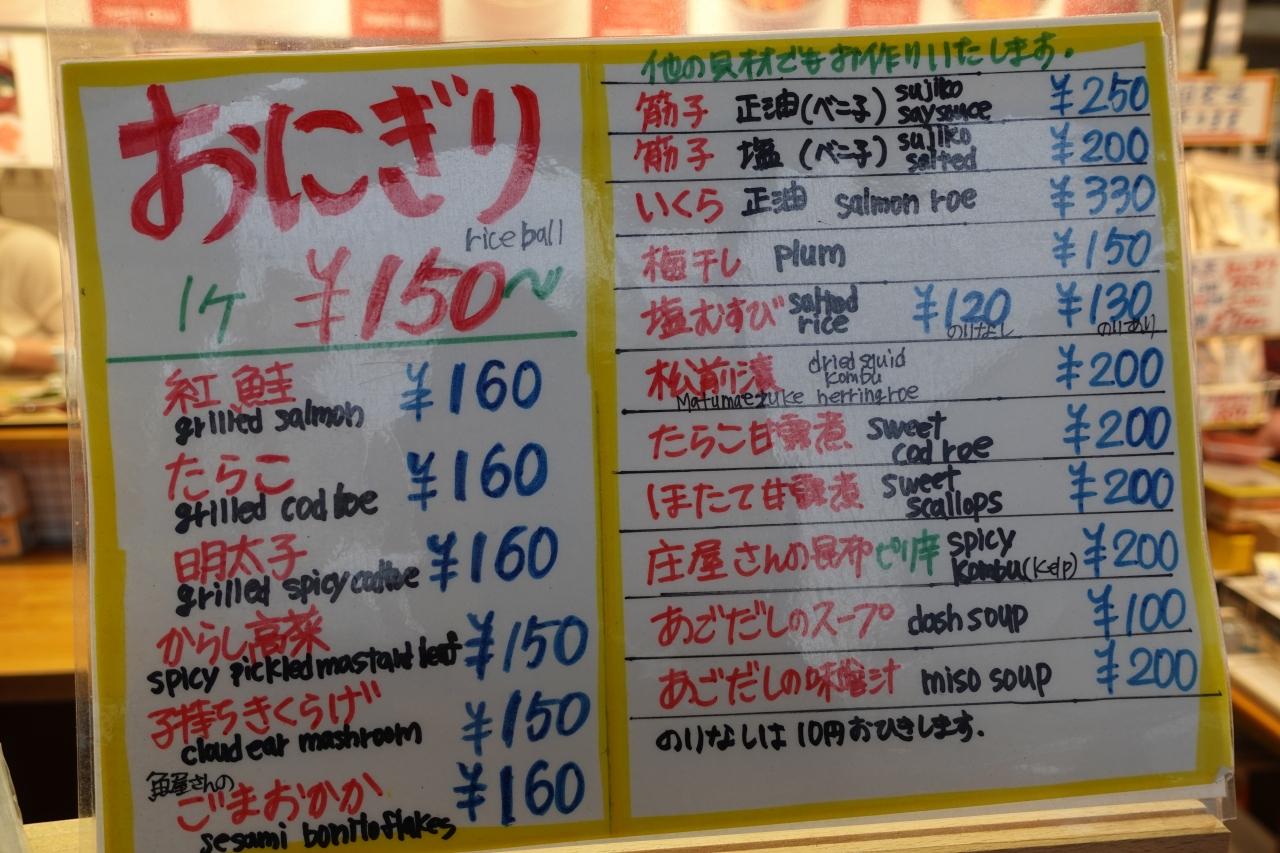 おにぎり
rice ball
1ケ ¥150〜
紅鮭 ¥160
grilled salmon
たらこ ¥160
grilled cod roe
明太子 ¥160
grilled spicy
からし高菜 ¥150
spicy pickled mastard leaf
子持ちきくらげ ¥150
cloud ear mashroom
魚屋さんの
ごまおかか ¥160
sesami bonito flakes
他の具材でもお作りいたします。
筋子 正油(ベニ子) sujiko saysauce ¥250
筋子 塩 (ベニ子) sujiko salted ¥200
いくら 正油 salmon roe ¥330
梅干し plum ¥150
塩むすび salted rice ¥120 のりなし ¥130 のりあり
松前漬 dried squid kombu ¥200
Matumaezuke herring roe
たらこ甘露煮 sweet cod roe ¥200
ほたて甘露煮 sweet scallops ¥200
庄屋さんの昆布ピリ辛 spicy kombu(kelp) ¥200
あごだしのスープ dash soup ¥100
あごだしの味噌汁 miso soup ¥200
のりなしは10円おひきします。